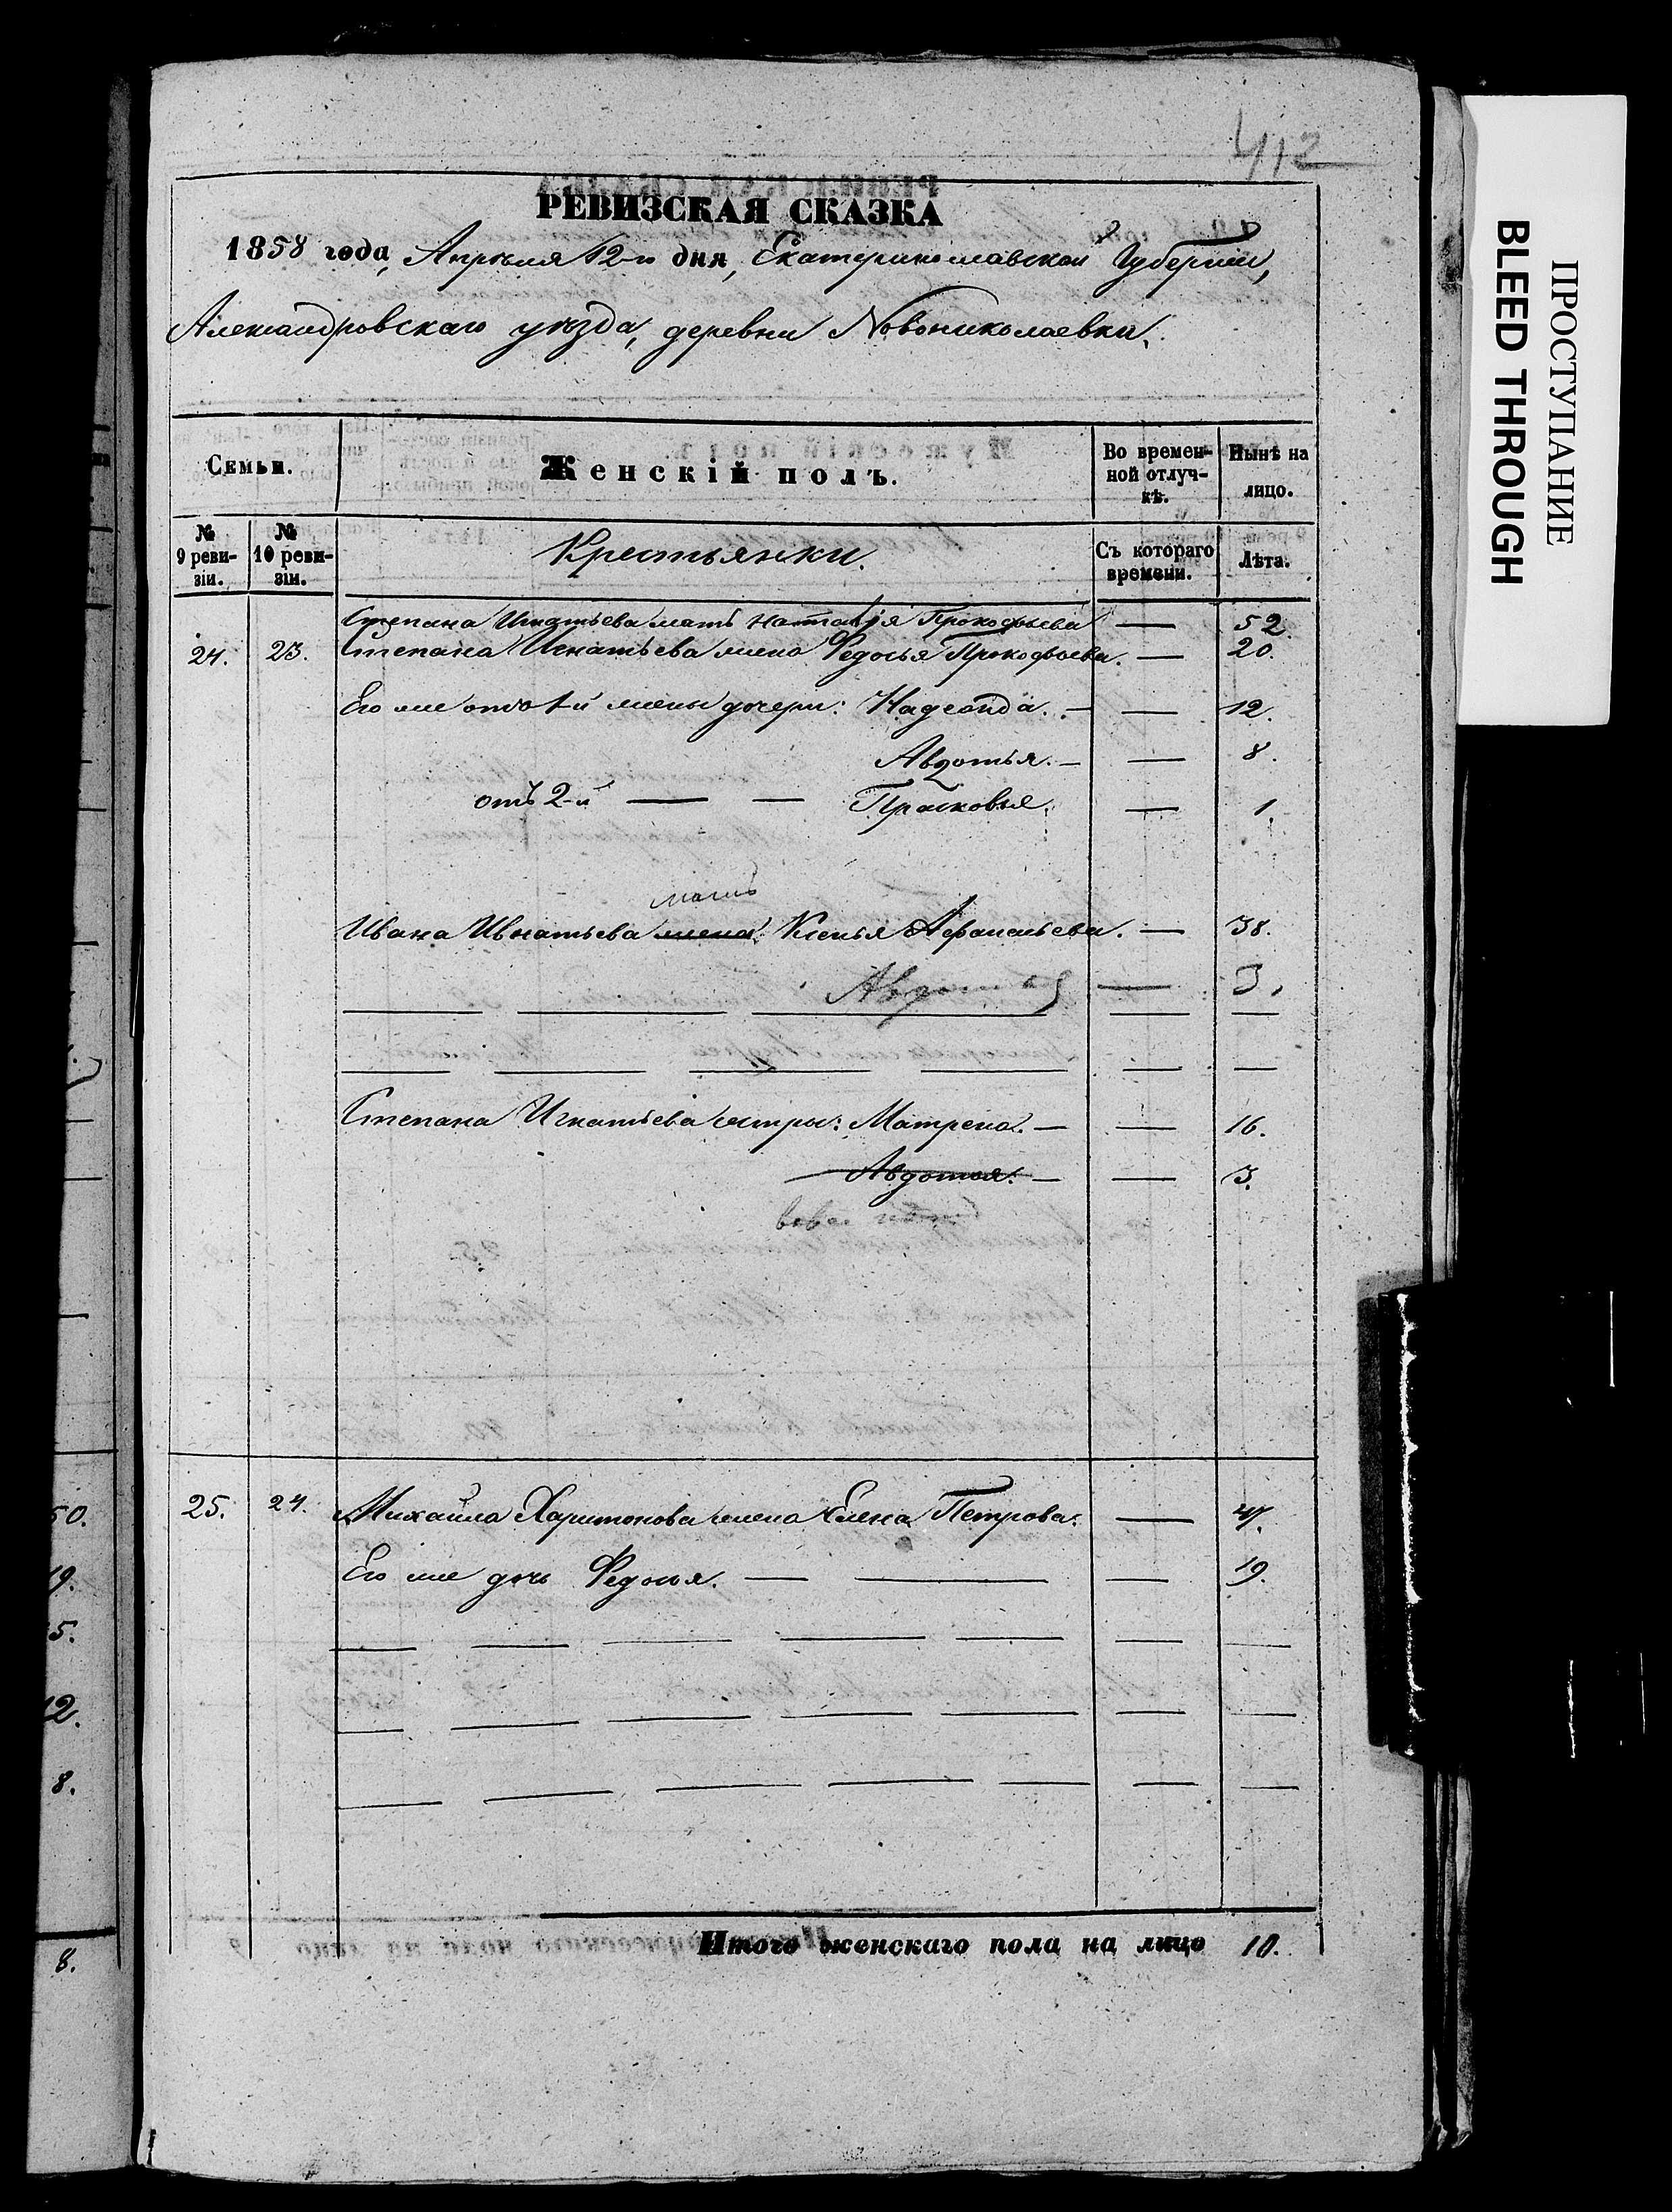 412
РЕВИЗСКАЯ СКАЗКА
1858 года, Апрѣля 12-го дня, Екатеринославской Губерніи,
Александровскаго уѣзда, деревни Новониколаевки.
Семьи. Женскій полъ. Во времен-ной отлуч-кѣ. Нынѣ на лицо.
№ 9 реви-зіи. № 10 реви-зіи. Крестьянки. Съ котораго времени. Лѣта.
Степана Игнатьева мать Наталія Прокофьева — 52.
24. 23. Степана Игнатьева жена Федосья Прокофьева. — 20.
Его же отъ 1-й жены дочери: Надежда. — — 12.
Авдотья. — — 8.
отъ 2-й — — Прасковья. — 1.
мать
Ивана Игнатьева жена Ксенья Афанасьева. — 38.
Авдотья — 3.
Степана Игнатьева сестры: Матрена. — — 16.
Авдотья. — — 3.
25. 24. Михайла Харитонова жена Елена Петрова. — 41.
Его же дочь Федосья. — — — 19.
Итого женскаго пола на лицо 10.
50.
19.
5.
12.
8.
8.
ПРОСТУПАНИЕ
BLEED THROUGH